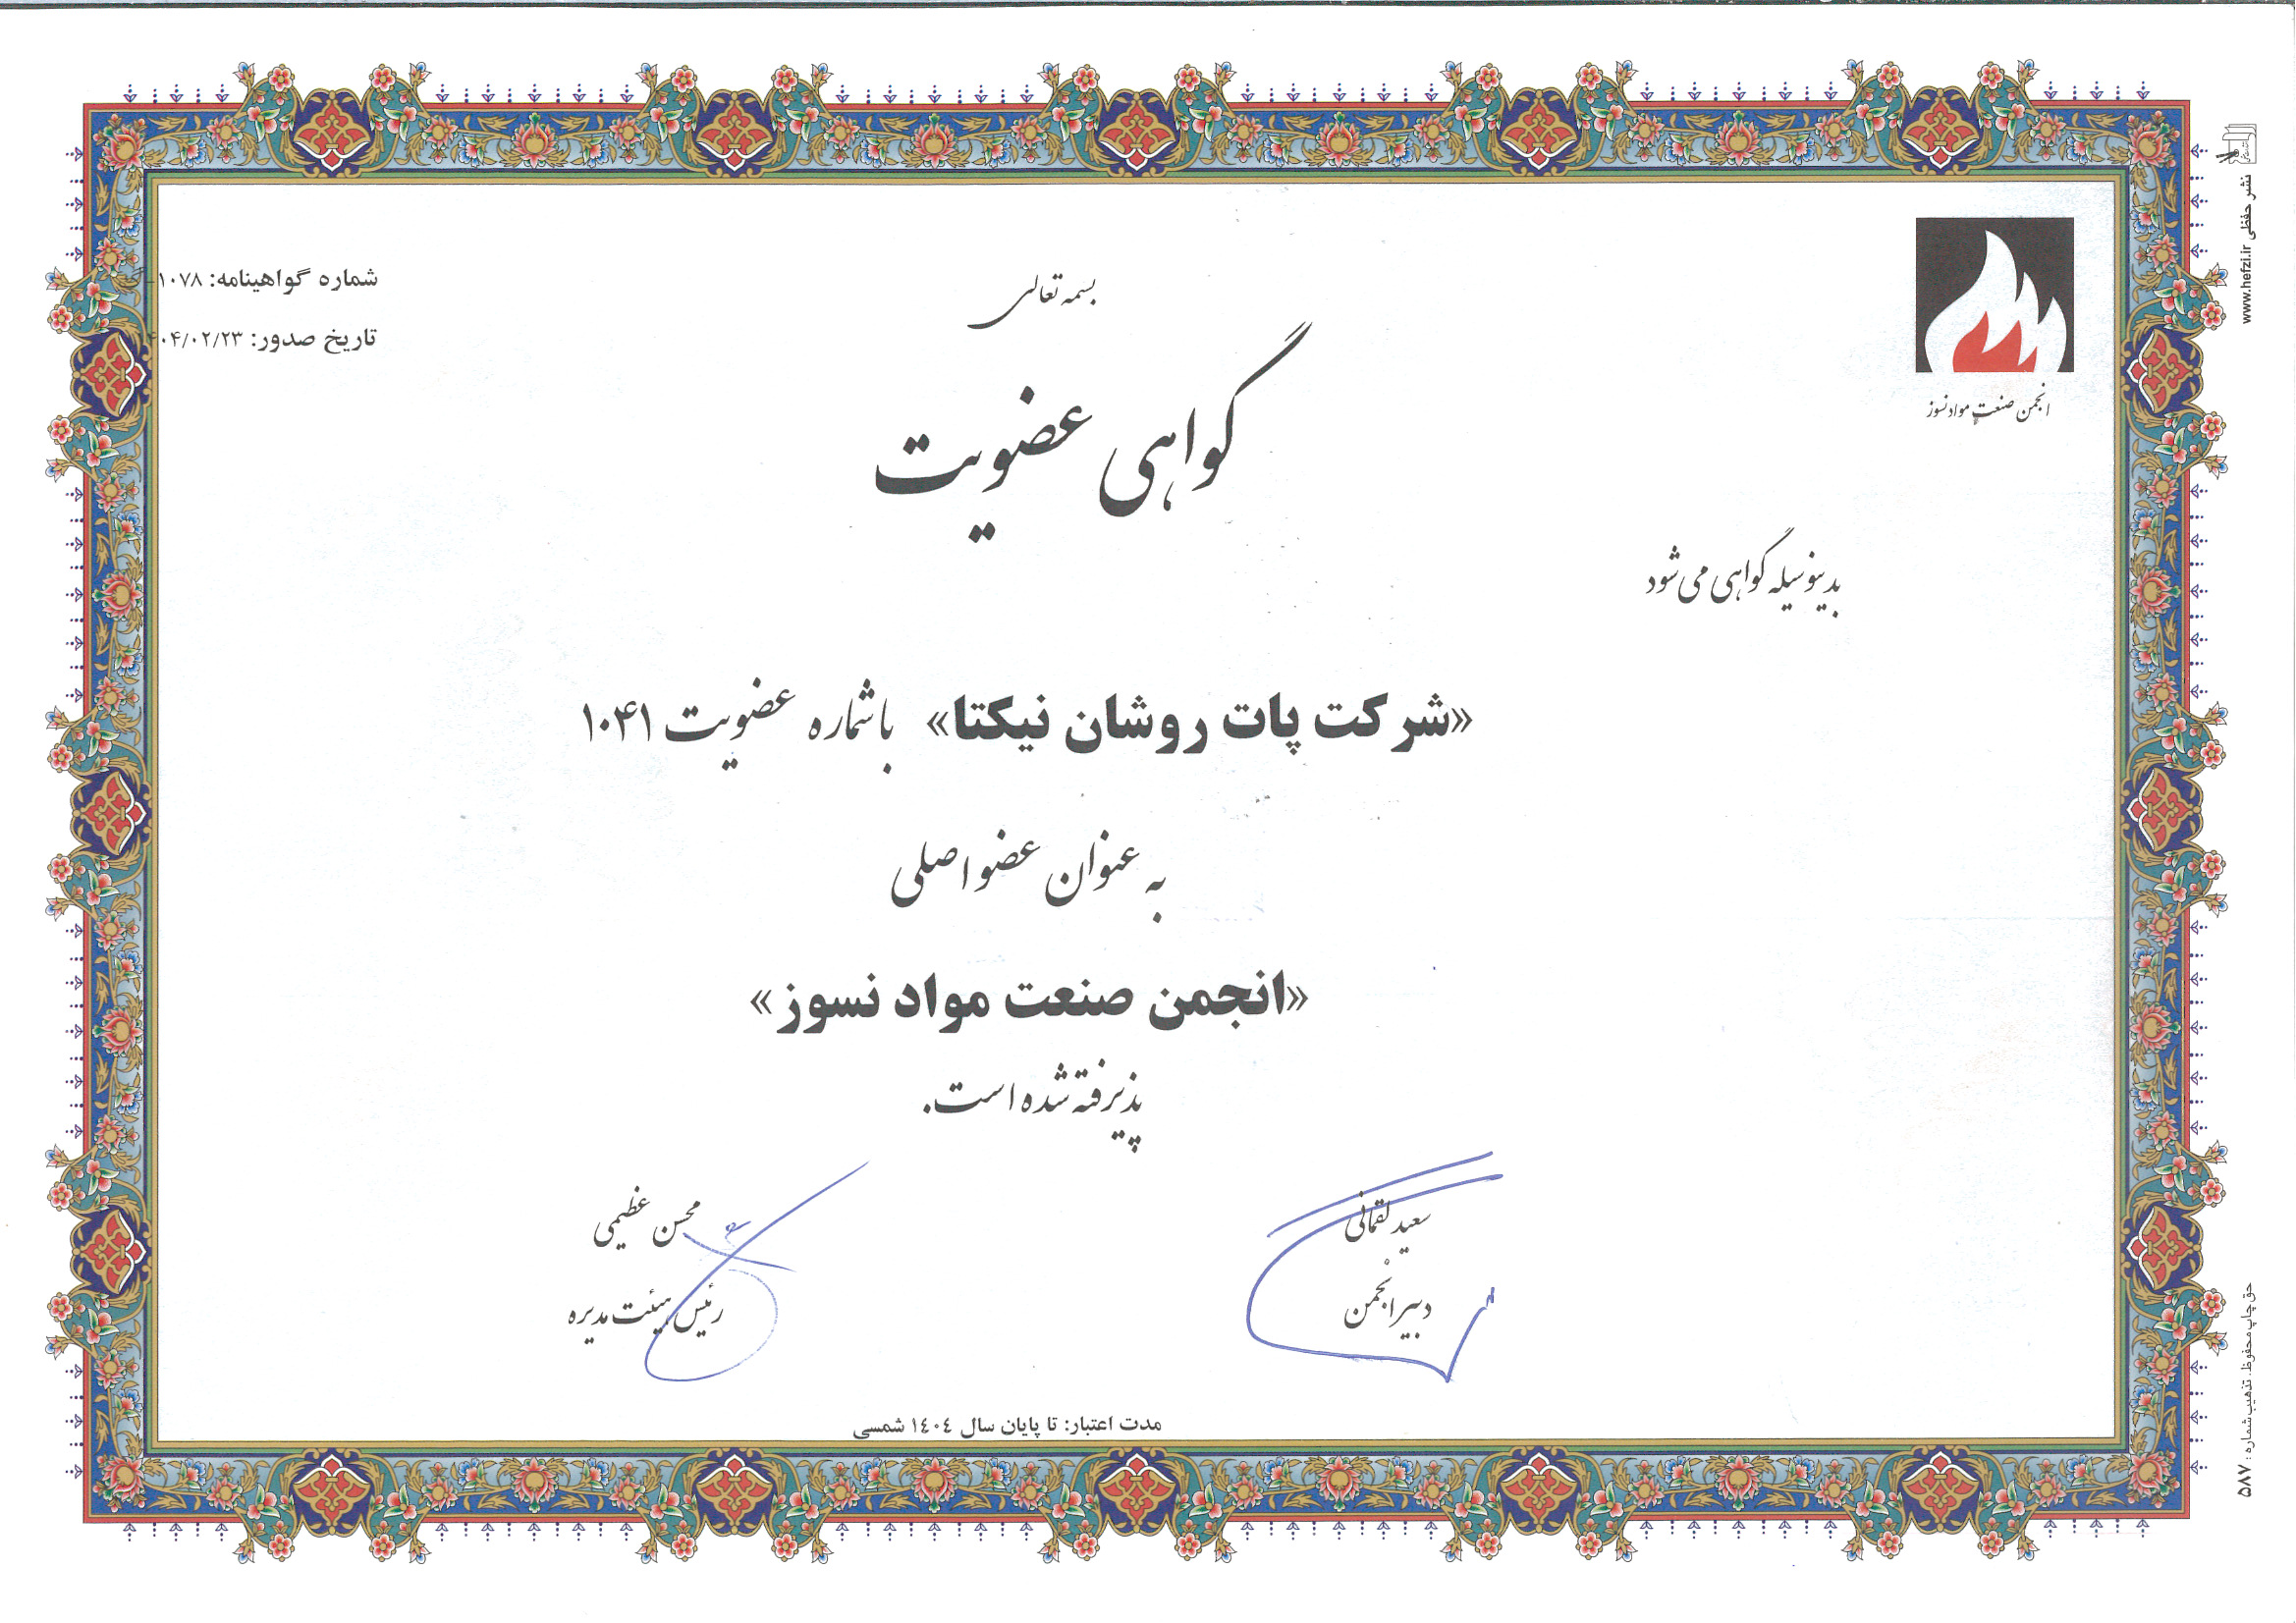 بسمه تعالی
شماره گواهینامه: ۱۰۷۸-
تاریخ صدور: ۴۰۴/۰۲/۲۳
انجمن صنعت مواد نسوز
گواهی عضویت
بدینوسیله گواهی می شود
«شرکت پات روشان نیکتا» با شماره عضویت ۱۰۴۱
به عنوان عضو اصلی
«انجمن صنعت مواد نسوز»
پذیرفته شده است.
سعید لقمانی
دبیر انجمن
محسن عظیمی
رئیس هیئت مدیره
مدت اعتبار: تا پایان سال ۱۴۰۴ شمسی
نشر حفظی www.hefzi.ir
حق چاپ محفوظ. تذهیب شماره: ۵۸۷